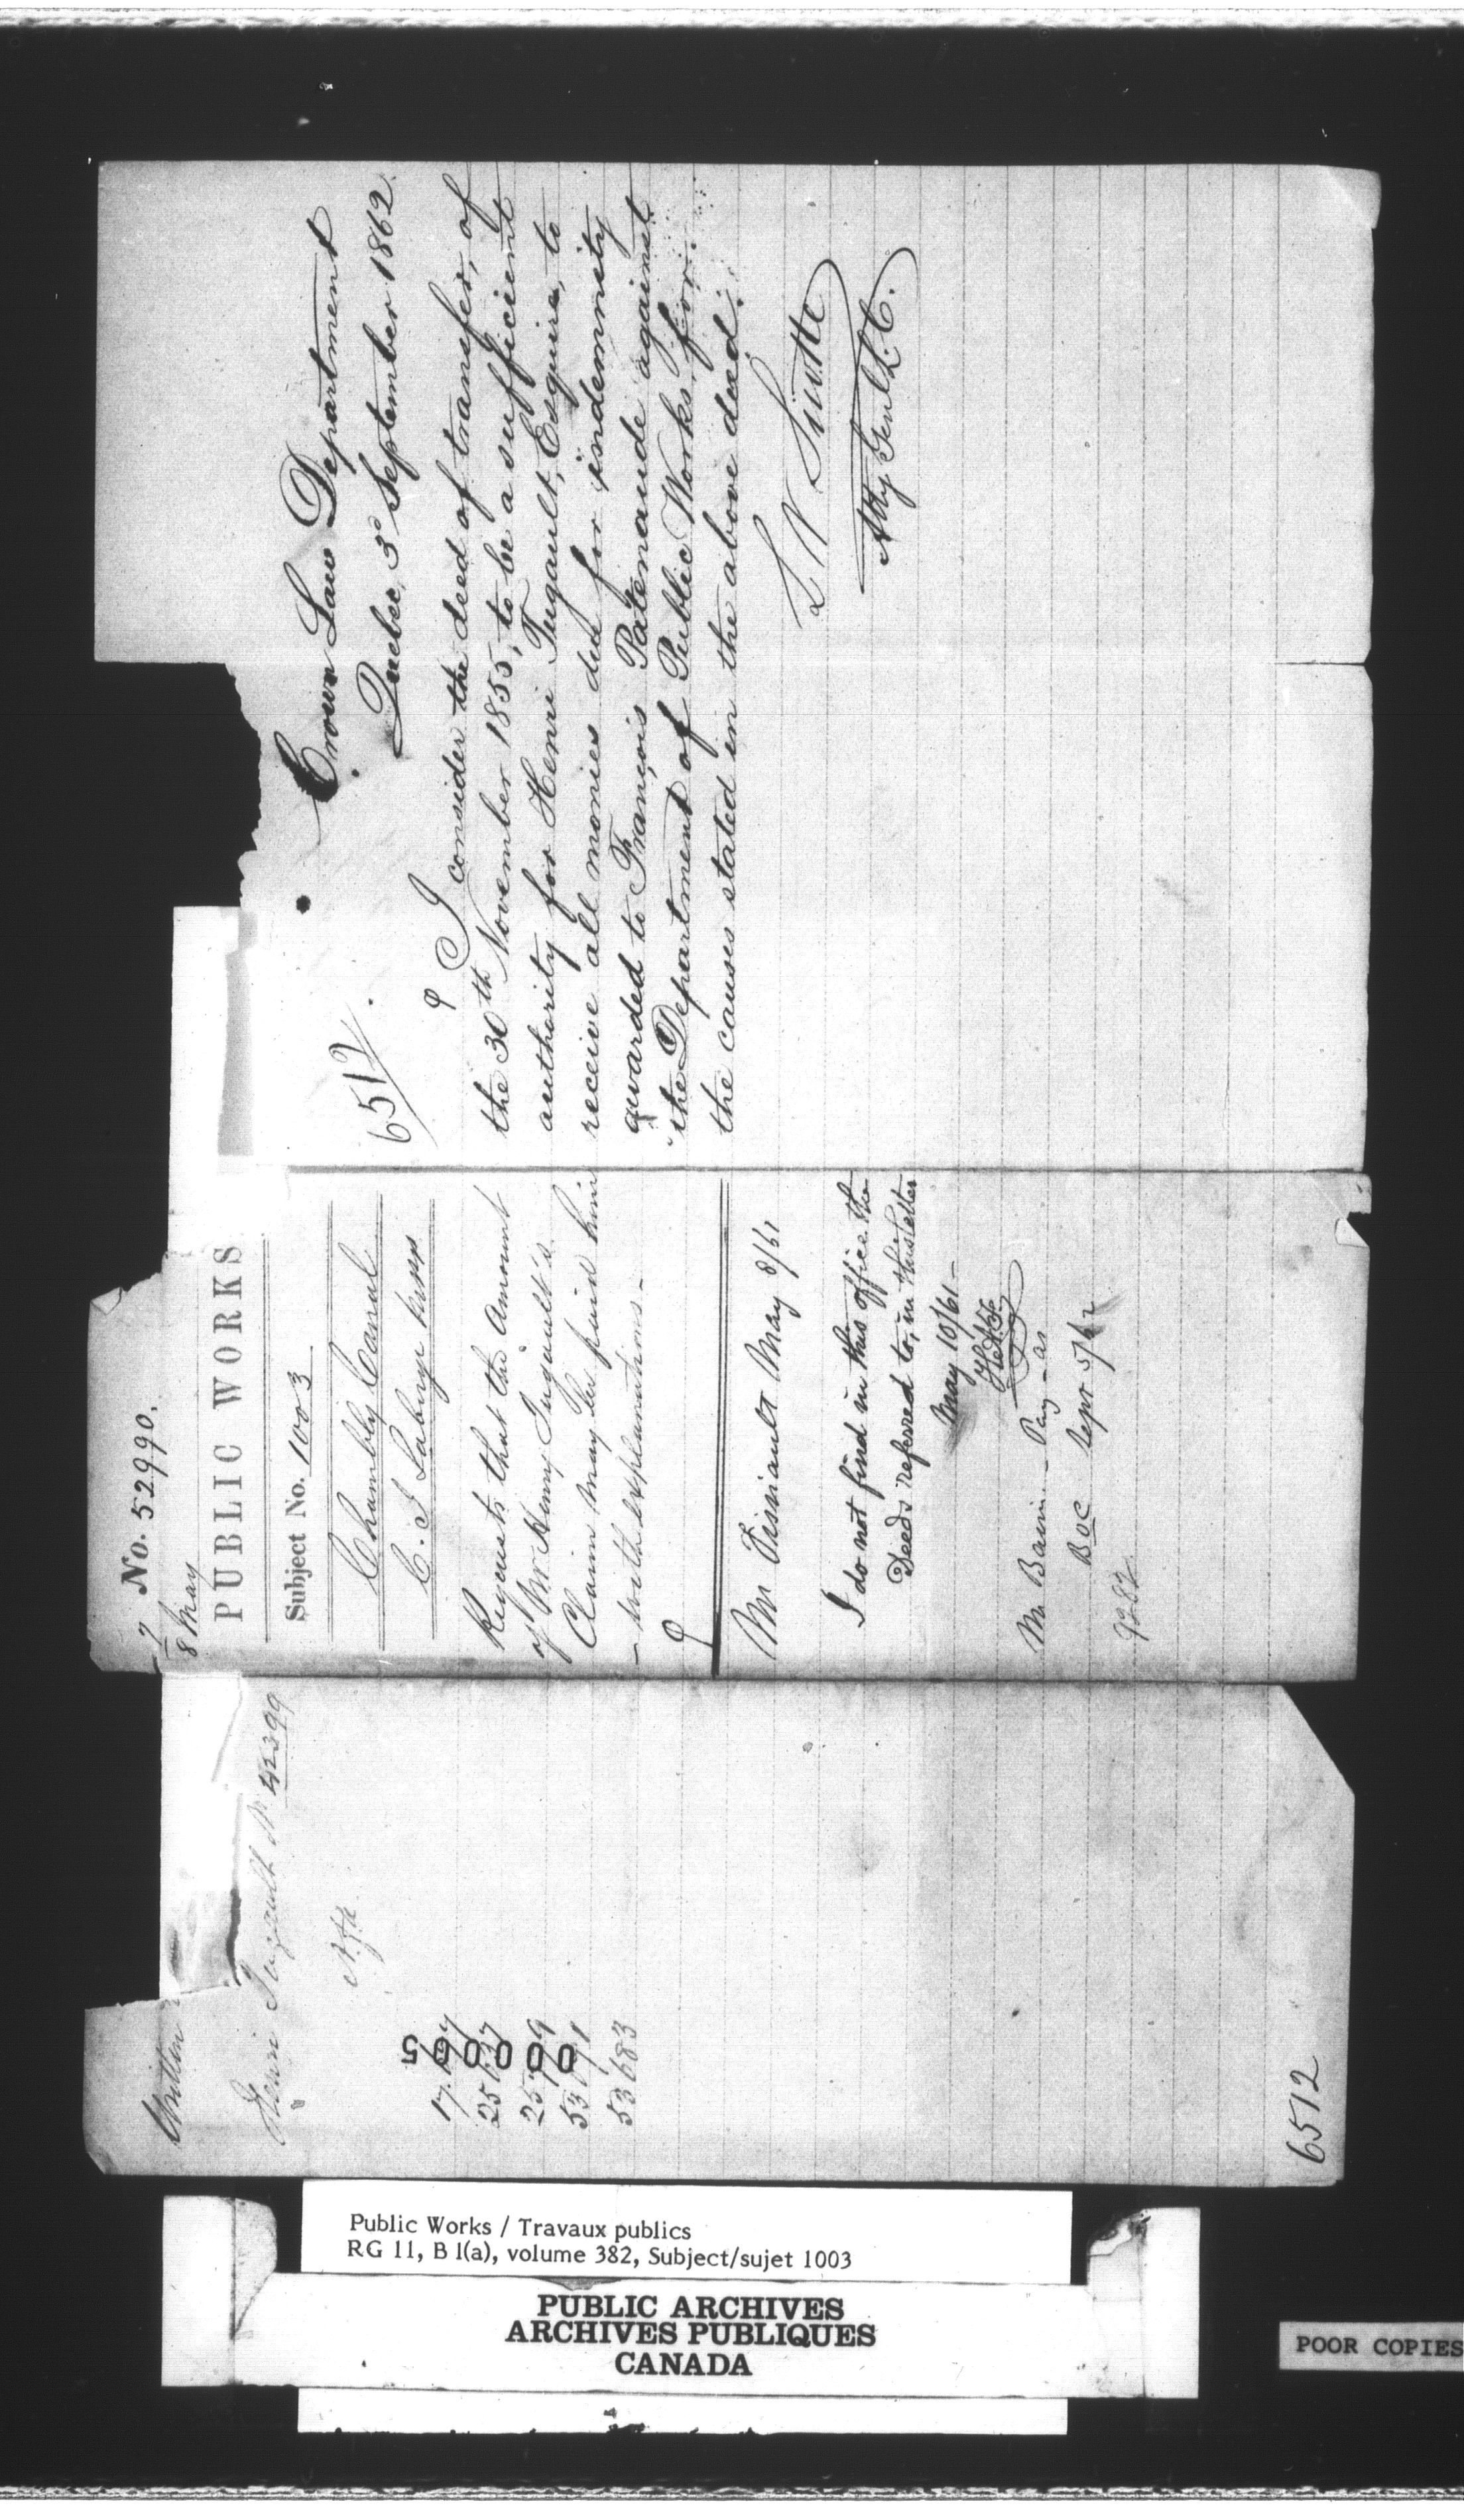 Crown Law Department
Quebec, 3d September 1862.
6512
I consider the deed of transfer, of
the 30th November 1855, to be a sufficient
authority for Henri Tugault, Esquire, to
receive all monies due for indemnity
awarded to François Patenaude against
the Department of Public Works, for
the causes stated in the above deed.
L V Sicotte
Atty Genl L. C.
No. 52990.
8 May
PUBLIC WORKS
Subject No. 1003
Chambly Canal
Requests that the Amount
of Mr Henry Tugault's
Claim may be paid him
- with explanations -
Mr Vissiault May 8/61
I do not find in this office the
Deeds referred to, in this letter
May 10/61 -
Mr Baine - Pay - as
Sepr 5/62
9282
Written
Henri Tugault No 42399
17.
25
25
53
53683
00005
6512
Public Works / Travaux publics
RG 11, B 1(a), volume 382, Subject/sujet 1003
PUBLIC ARCHIVES
ARCHIVES PUBLIQUES
CANADA
POOR COPIES